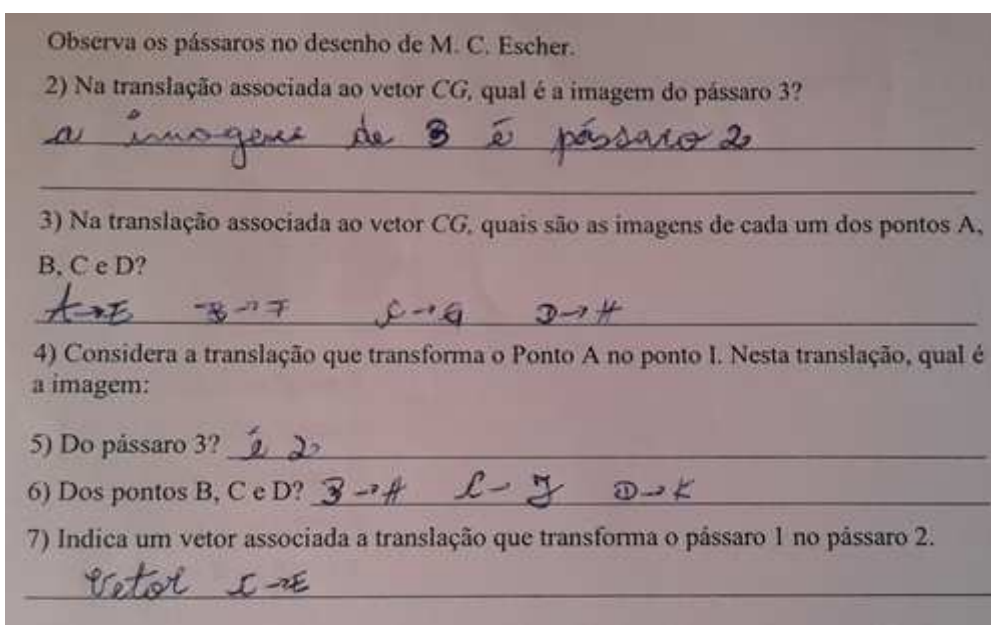 Observa os pássaros no desenho de M. C. Escher.
2) Na translação associada ao vetor CG, qual é a imagem do pássaro 3?
a imagem de 3 é pássaro 2
3) Na translação associada ao vetor CG, quais são as imagens de cada um dos pontos A,
B, C e D?
A→E B→F C→G D→H
4) Considera a translação que transforma o Ponto A no ponto I. Nesta translação, qual é
a imagem:
5) Do pássaro 3? é 2
6) Dos pontos B, C e D? B→H C→J D→K
7) Indica um vetor associada a translação que transforma o pássaro 1 no pássaro 2.
Vetor I→E